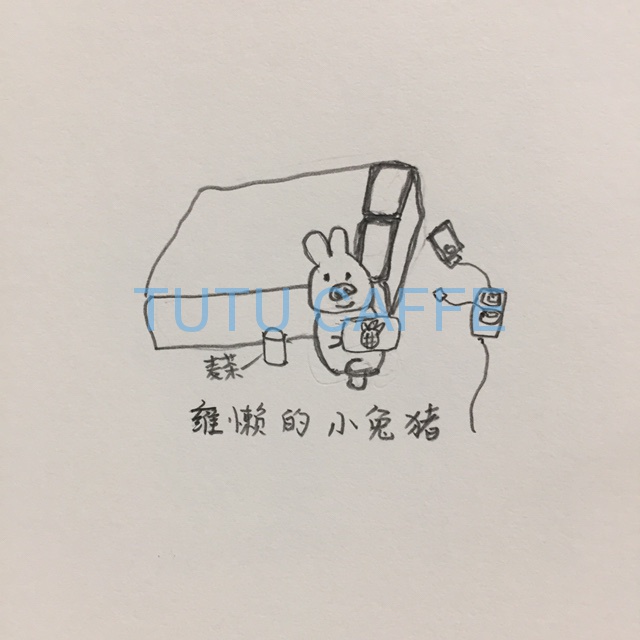 TUTU CAFFE
麦茶
雍懒的小兔猪